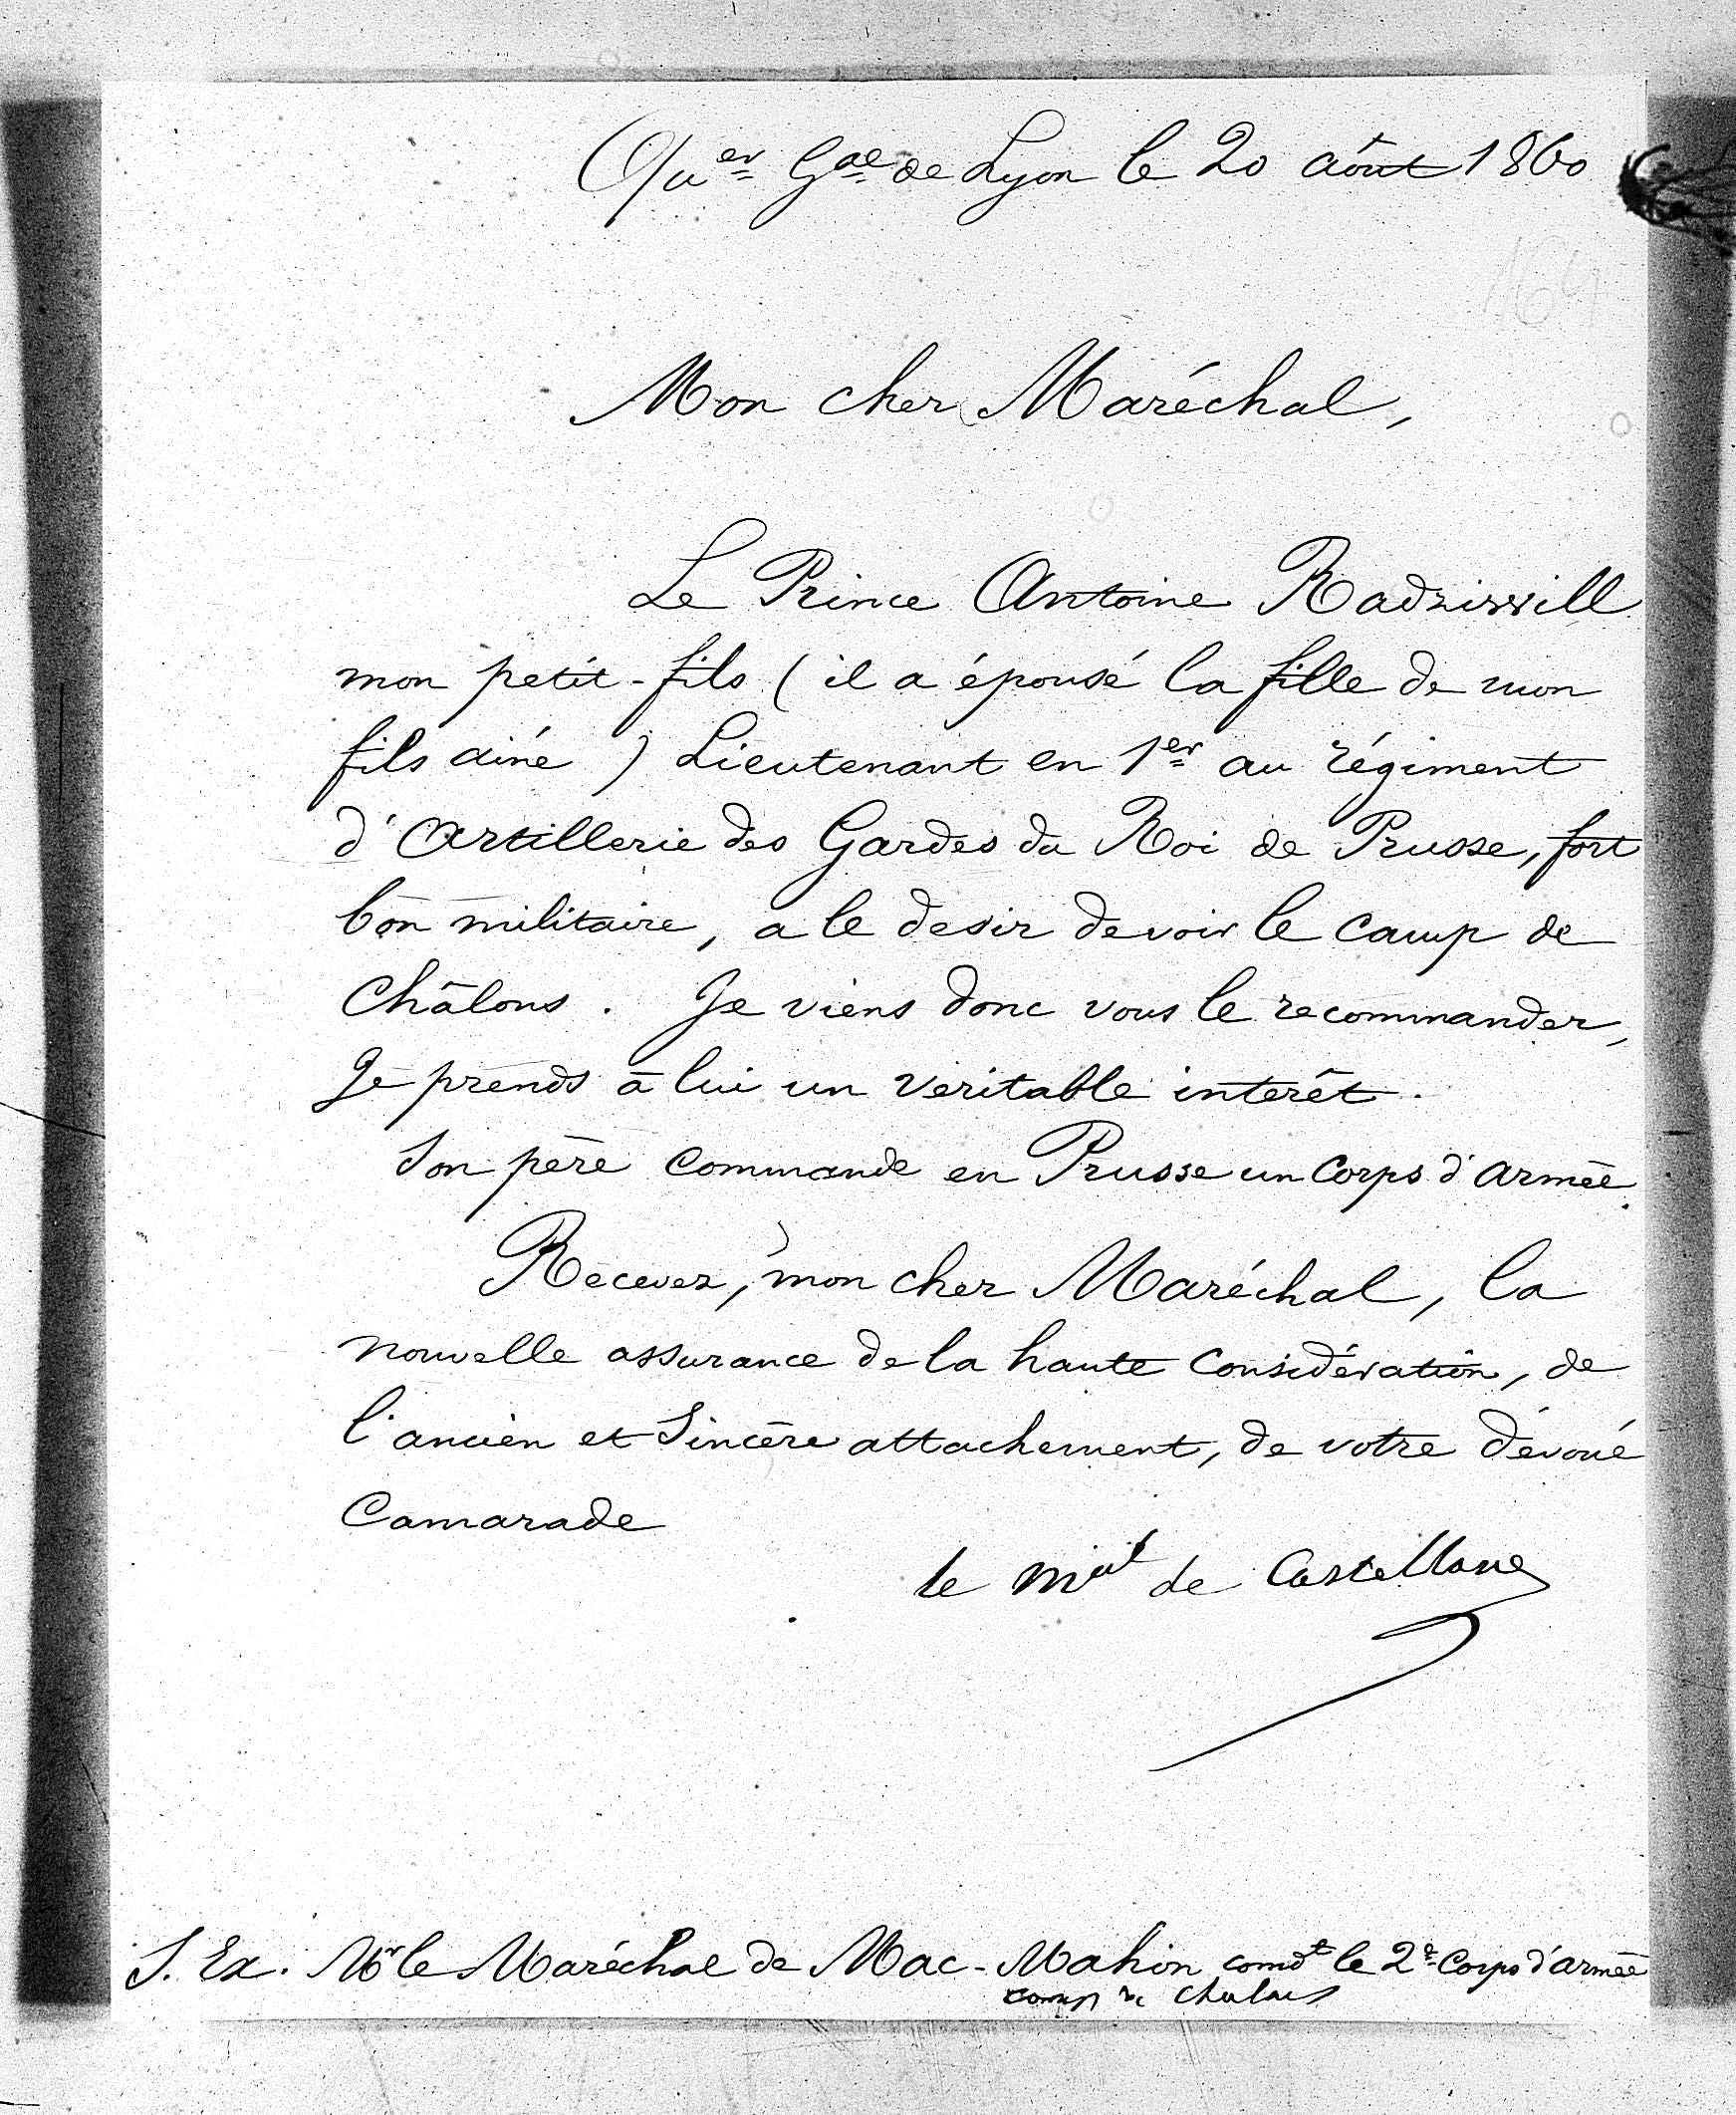 Quer Gal de Lyon le 20 août 1860
164
Mon cher Maréchal,
Le Prince Antoine Radziwill
mon petit-fils (il a épousé la fille de mon
fils ainé) Lieutenant en 1er au régiment
d'Artillerie des Gardes du Roi de Prusse, fort
bon militaire, a le desir de voir le camp de
Châlons. Je viens donc vous le recommander,
Je prends à lui un veritable interêt.
Son père commande en Prusse un Corps d'armée.
Recevez, mon cher Maréchal, la
nouvelle assurance de la haute considération, de
l'ancien et Sincère attachement, de votre dévoué
Camarade
le Mal de Castellane
S. Ex. Mr le Maréchal de Mac-Mahon comdt le 2e Corps d'armée
camp de Chalons